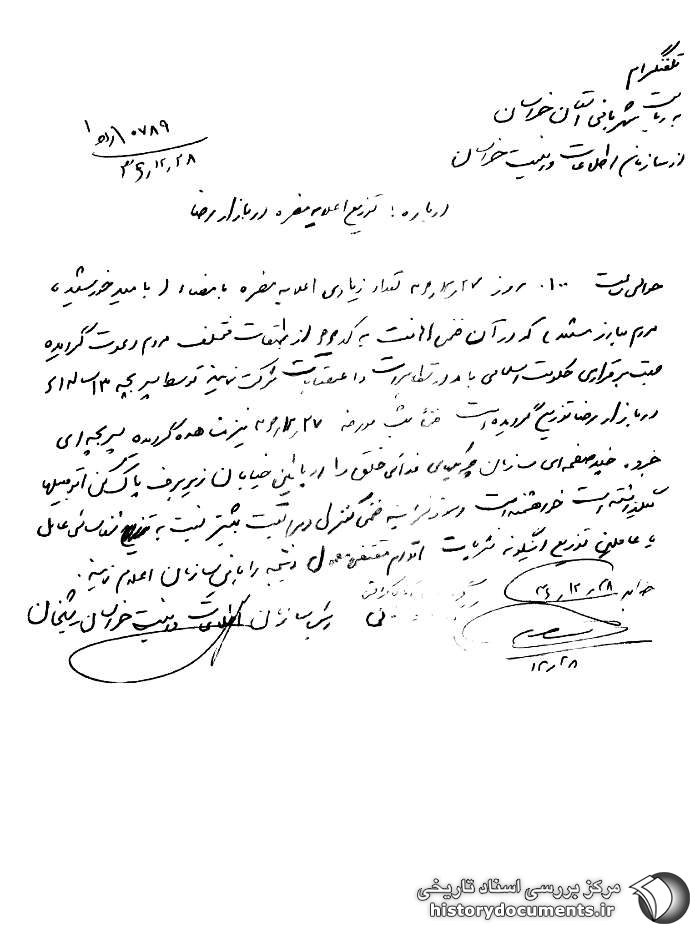 تلفنگرام
به ریاست شهربانی استان خراسان
از سازمان اطلاعات و امنیت خراسان
۱۰۷۸۹
۳۶٫۱۲٫۲۸
درباره: توزیع اعلامیه مضره در بازار رضا
حوالی ساعت ۰۱۰۰ روز ۳۶٫۱۲٫۲۷ تعداد زیادی اعلامیه مضره با مضاء (با امید خورشید،
مردم مبارز مشهد) که در آن ضمن اهانت به کلیه از طبقات مختلف مردم دعوت گردیده
جهت برقراری حکومت اسلامی باید در تظاهرات و اعتصابات شرکت نمایند توسط پسر بچه ۱۳ ساله‌ای
در بازار رضا توزیع گردیده است ضمناً شب مورخه ۳۶٫۱۲٫۲۷ نیز مشاهده گردیده پسر بچه‌ای
جزوه چند صفحه‌ای سازمان چریکهای فدائی خلق را در پائین خیابان زیر برف پاک کن اتومبیلها
میگذاشته است خواهشمند است دستور فرمایید ضمن کنترل و مراقبت بیشتر نسبت به شناسائی عامل
یا عاملین توزیع اینگونه نشریات اقدام مقتضی معمول و نتیجه را به این سازمان اعلام نمایند.
رئیس سازمان اطلاعات و امنیت خراسان شیخان
۳۶٫۱۲٫۲۸
۱۲٫۲۸
مرکز بررسی اسناد تاریخی
historydocuments.ir